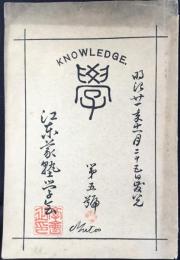 KNOWLEDGE.
學
明治廿一年十一月二十五日発兌
第五號
江东義塾学会